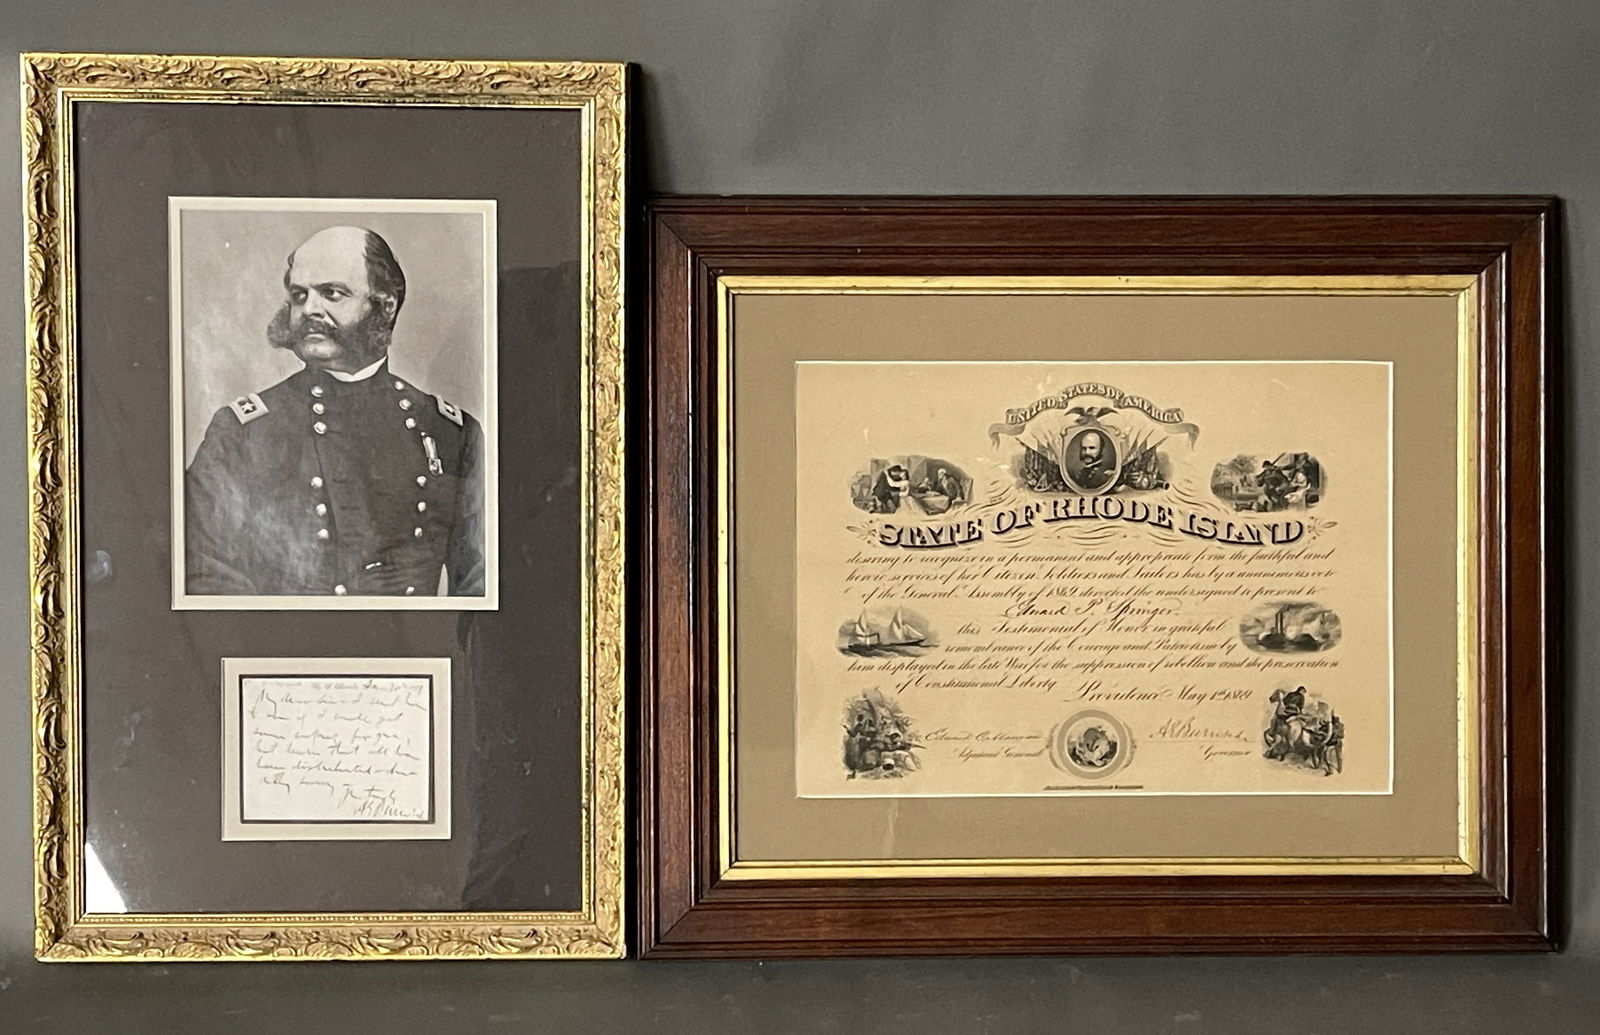 My dear Sir I sent him
to see if I could get
some copies for you,
but learn that all have
been distributed
sorry
A E Burnside
UNITED STATES OF AMERICA
STATE OF RHODE ISLAND
desiring to recognize in a permanent and appropriate form the faithful and
heroic services of her Citizen Soldiers and Sailors has by a unanimous vote
of the General Assembly of 1869, directed the undersigned to present to
Edward P. Springer
this Testimonial of Honor in grateful
remembrance of the Courage and Patriotism by
him displayed in the late War for the suppression of rebellion and the preservation
of Constitutional Liberty.
Providence May 1st 1869
Edward C. Mauran
A E Burnside
Adjutant General
Governor